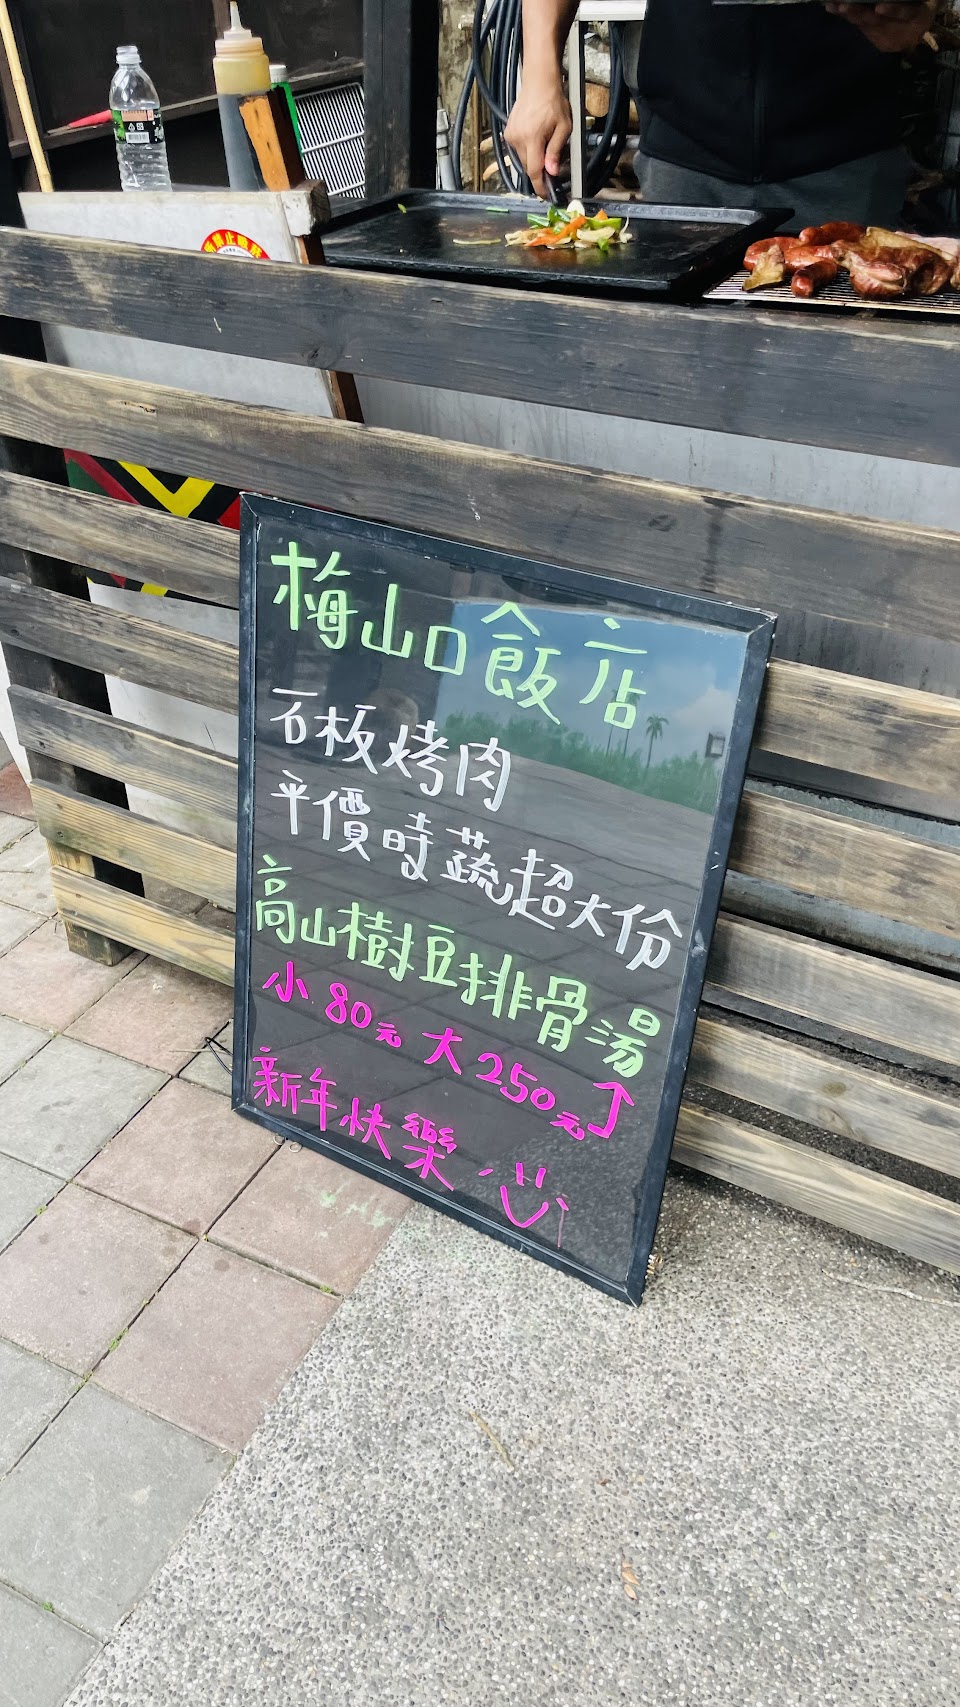 梅山口飯店
石板烤肉
平價時蔬超大份
高山樹豆排骨湯
小80元 大250元
新年快樂